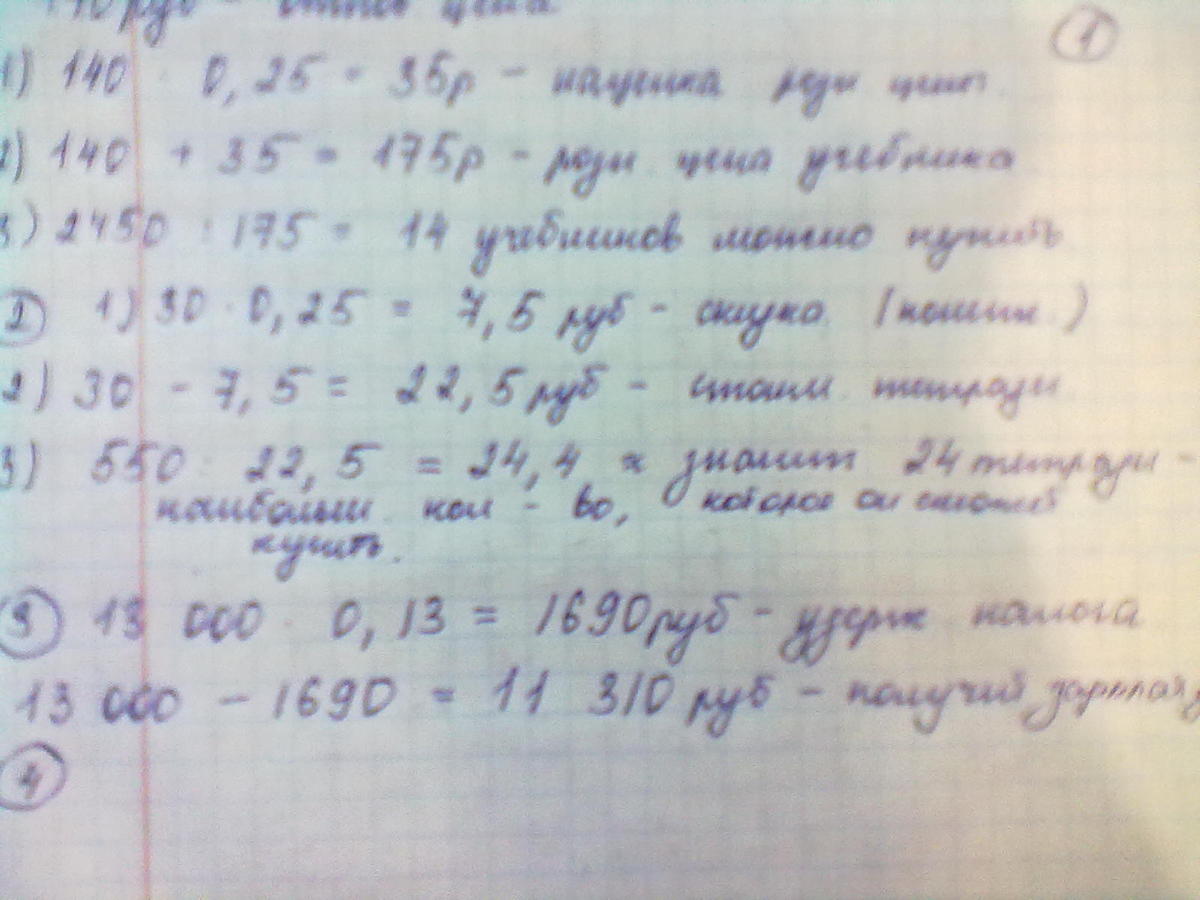 140 руб - оптов цена
1
1) 140 · 0,25 = 35р - наценка розн цены.
2) 140 + 35 = 175р - розн. цена учебника
3) 2450 : 175 = 14 учебников можно купить
2 1) 30 · 0,25 = 7,5 руб - скидка.
2) 30 - 7,5 = 22,5 руб - стоим. тетради.
3) 550 : 22,5 = 24,4 значит 24 тетради -
наибольш. кол - во, которое он сможет
купить.
3 13 000 · 0,13 = 1690руб - удерж налога
13 000 - 1690 = 11 310 руб - получит зарплату
4